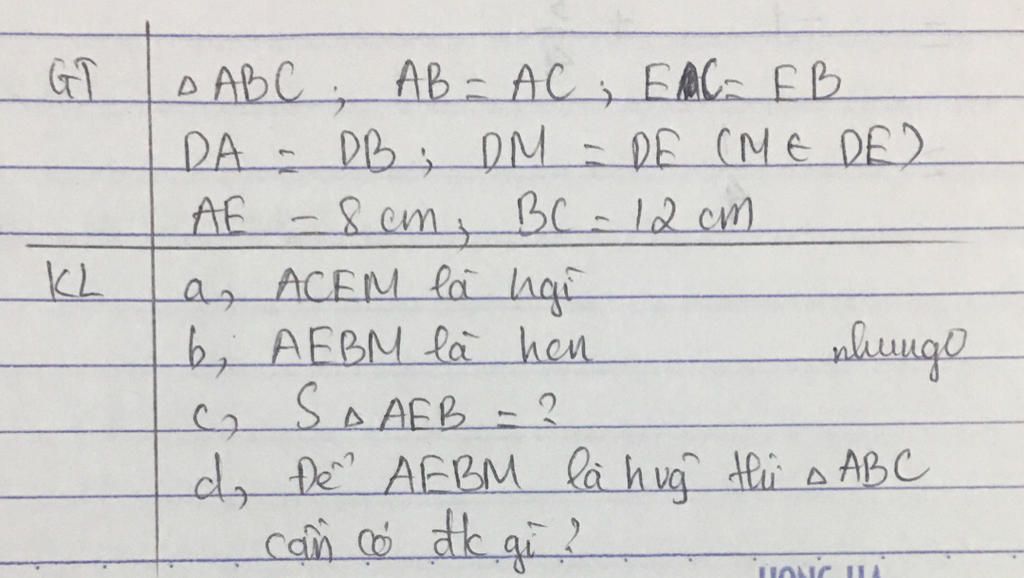 GT ΔABC; AB = AC; EC = EB
DA = DB; DM = DE (M ∈ DE)
AE = 8 cm, BC = 12 cm
KL a, ACEM là hgì
b, AEBM là hcn nhungo
c, S ΔAEB = ?
d, Để AEBM là hvg thì ΔABC
cần có đk gì?
HONG HA